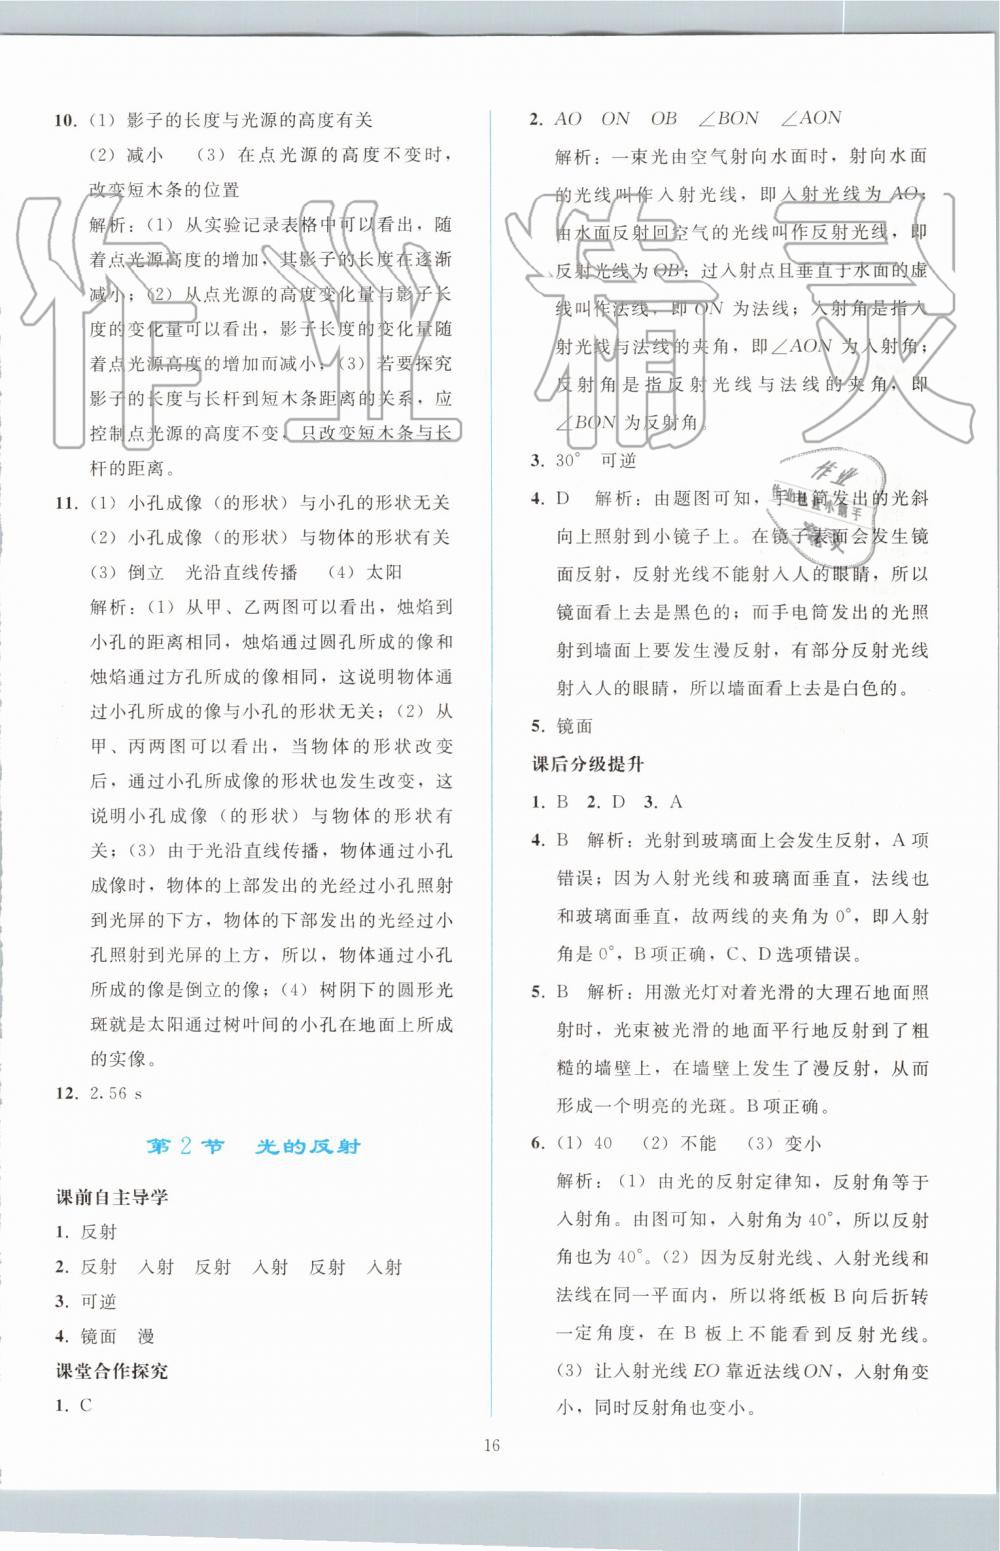 10. (1) 影子的长度与光源的高度有关
(2) 减小 (3) 在点光源的高度不变时，
改变短木条的位置
解析：(1) 从实验记录表格中可以看出，随
着点光源高度的增加，其影子的长度在逐渐
减小；(2) 从点光源的高度变化量与影子长
度的变化量可以看出，影子长度的变化量随
着点光源高度的增加而减小；(3) 若要探究
影子的长度与长杆到短木条距离的关系，应
控制点光源的高度不变，只改变短木条与长
杆的距离。
11. (1) 小孔成像（的形状）与小孔的形状无关
(2) 小孔成像（的形状）与物体的形状有关
(3) 倒立 光沿直线传播 (4) 太阳
解析：(1) 从甲、乙两图可以看出，烛焰到
小孔的距离相同，烛焰通过圆孔所成的像和
烛焰通过方孔所成的像相同，这说明物体通
过小孔所成的像与小孔的形状无关；(2) 从
甲、丙两图可以看出，当物体的形状改变
后，通过小孔所成像的形状也发生改变，这
说明小孔成像（的形状）与物体的形状有
关；(3) 由于光沿直线传播，物体通过小孔
成像时，物体的上部发出的光经过小孔照射
到光屏的下方，物体的下部发出的光经过小
孔照射到光屏的上方，所以，物体通过小孔
所成的像是倒立的像；(4) 树阴下的圆形光
斑就是太阳通过树叶间的小孔在地面上所成
的实像。
12. 2.56 s
第2节 光的反射
课前自主导学
1. 反射
2. 反射 入射 反射 入射 反射 入射
3. 可逆
4. 镜面 漫
课堂合作探究
1. C
2. AO ON OB ∠BON ∠AON
解析：一束光由空气射向水面时，射向水面
的光线叫作入射光线，即入射光线为 AO；
由水面反射回空气的光线叫作反射光线，即
反射光线为 OB；过入射点且垂直于水面的虚
线叫作法线，即 ON 为法线；入射角是指入
射光线与法线的夹角，即∠AON 为入射角；
反射角是指反射光线与法线的夹角，即
∠BON 为反射角。
3. 30° 可逆
4. D 解析：由题图可知，手电筒发出的光斜
向上照射到小镜子上。在镜子表面会发生镜
面反射，反射光线不能射入人的眼睛，所以
镜面看上去是黑色的；而手电筒发出的光照
射到墙面上要发生漫反射，有部分反射光线
射入人的眼睛，所以墙面看上去是白色的。
5. 镜面
课后分级提升
1. B 2. D 3. A
4. B 解析：光射到玻璃面上会发生反射，A 项
错误；因为入射光线和玻璃面垂直，法线也
和玻璃面垂直，故两线的夹角为 0°，即入射
角是 0°，B 项正确，C、D 选项错误。
5. B 解析：用激光灯对着光滑的大理石地面照
射时，光束被光滑的地面平行地反射到了粗
糙的墙壁上，在墙壁上发生了漫反射，从而
形成一个明亮的光斑。B 项正确。
6. (1) 40 (2) 不能 (3) 变小
解析：(1) 由光的反射定律知，反射角等于
入射角。由图可知，入射角为 40°，所以反射
角也为 40°。(2) 因为反射光线、入射光线和
法线在同一平面内，所以将纸板 B 向后折转
一定角度，在 B 板上不能看到反射光线。
(3) 让入射光线 EO 靠近法线 ON，入射角变
小，同时反射角也变小。
16
作业精灵